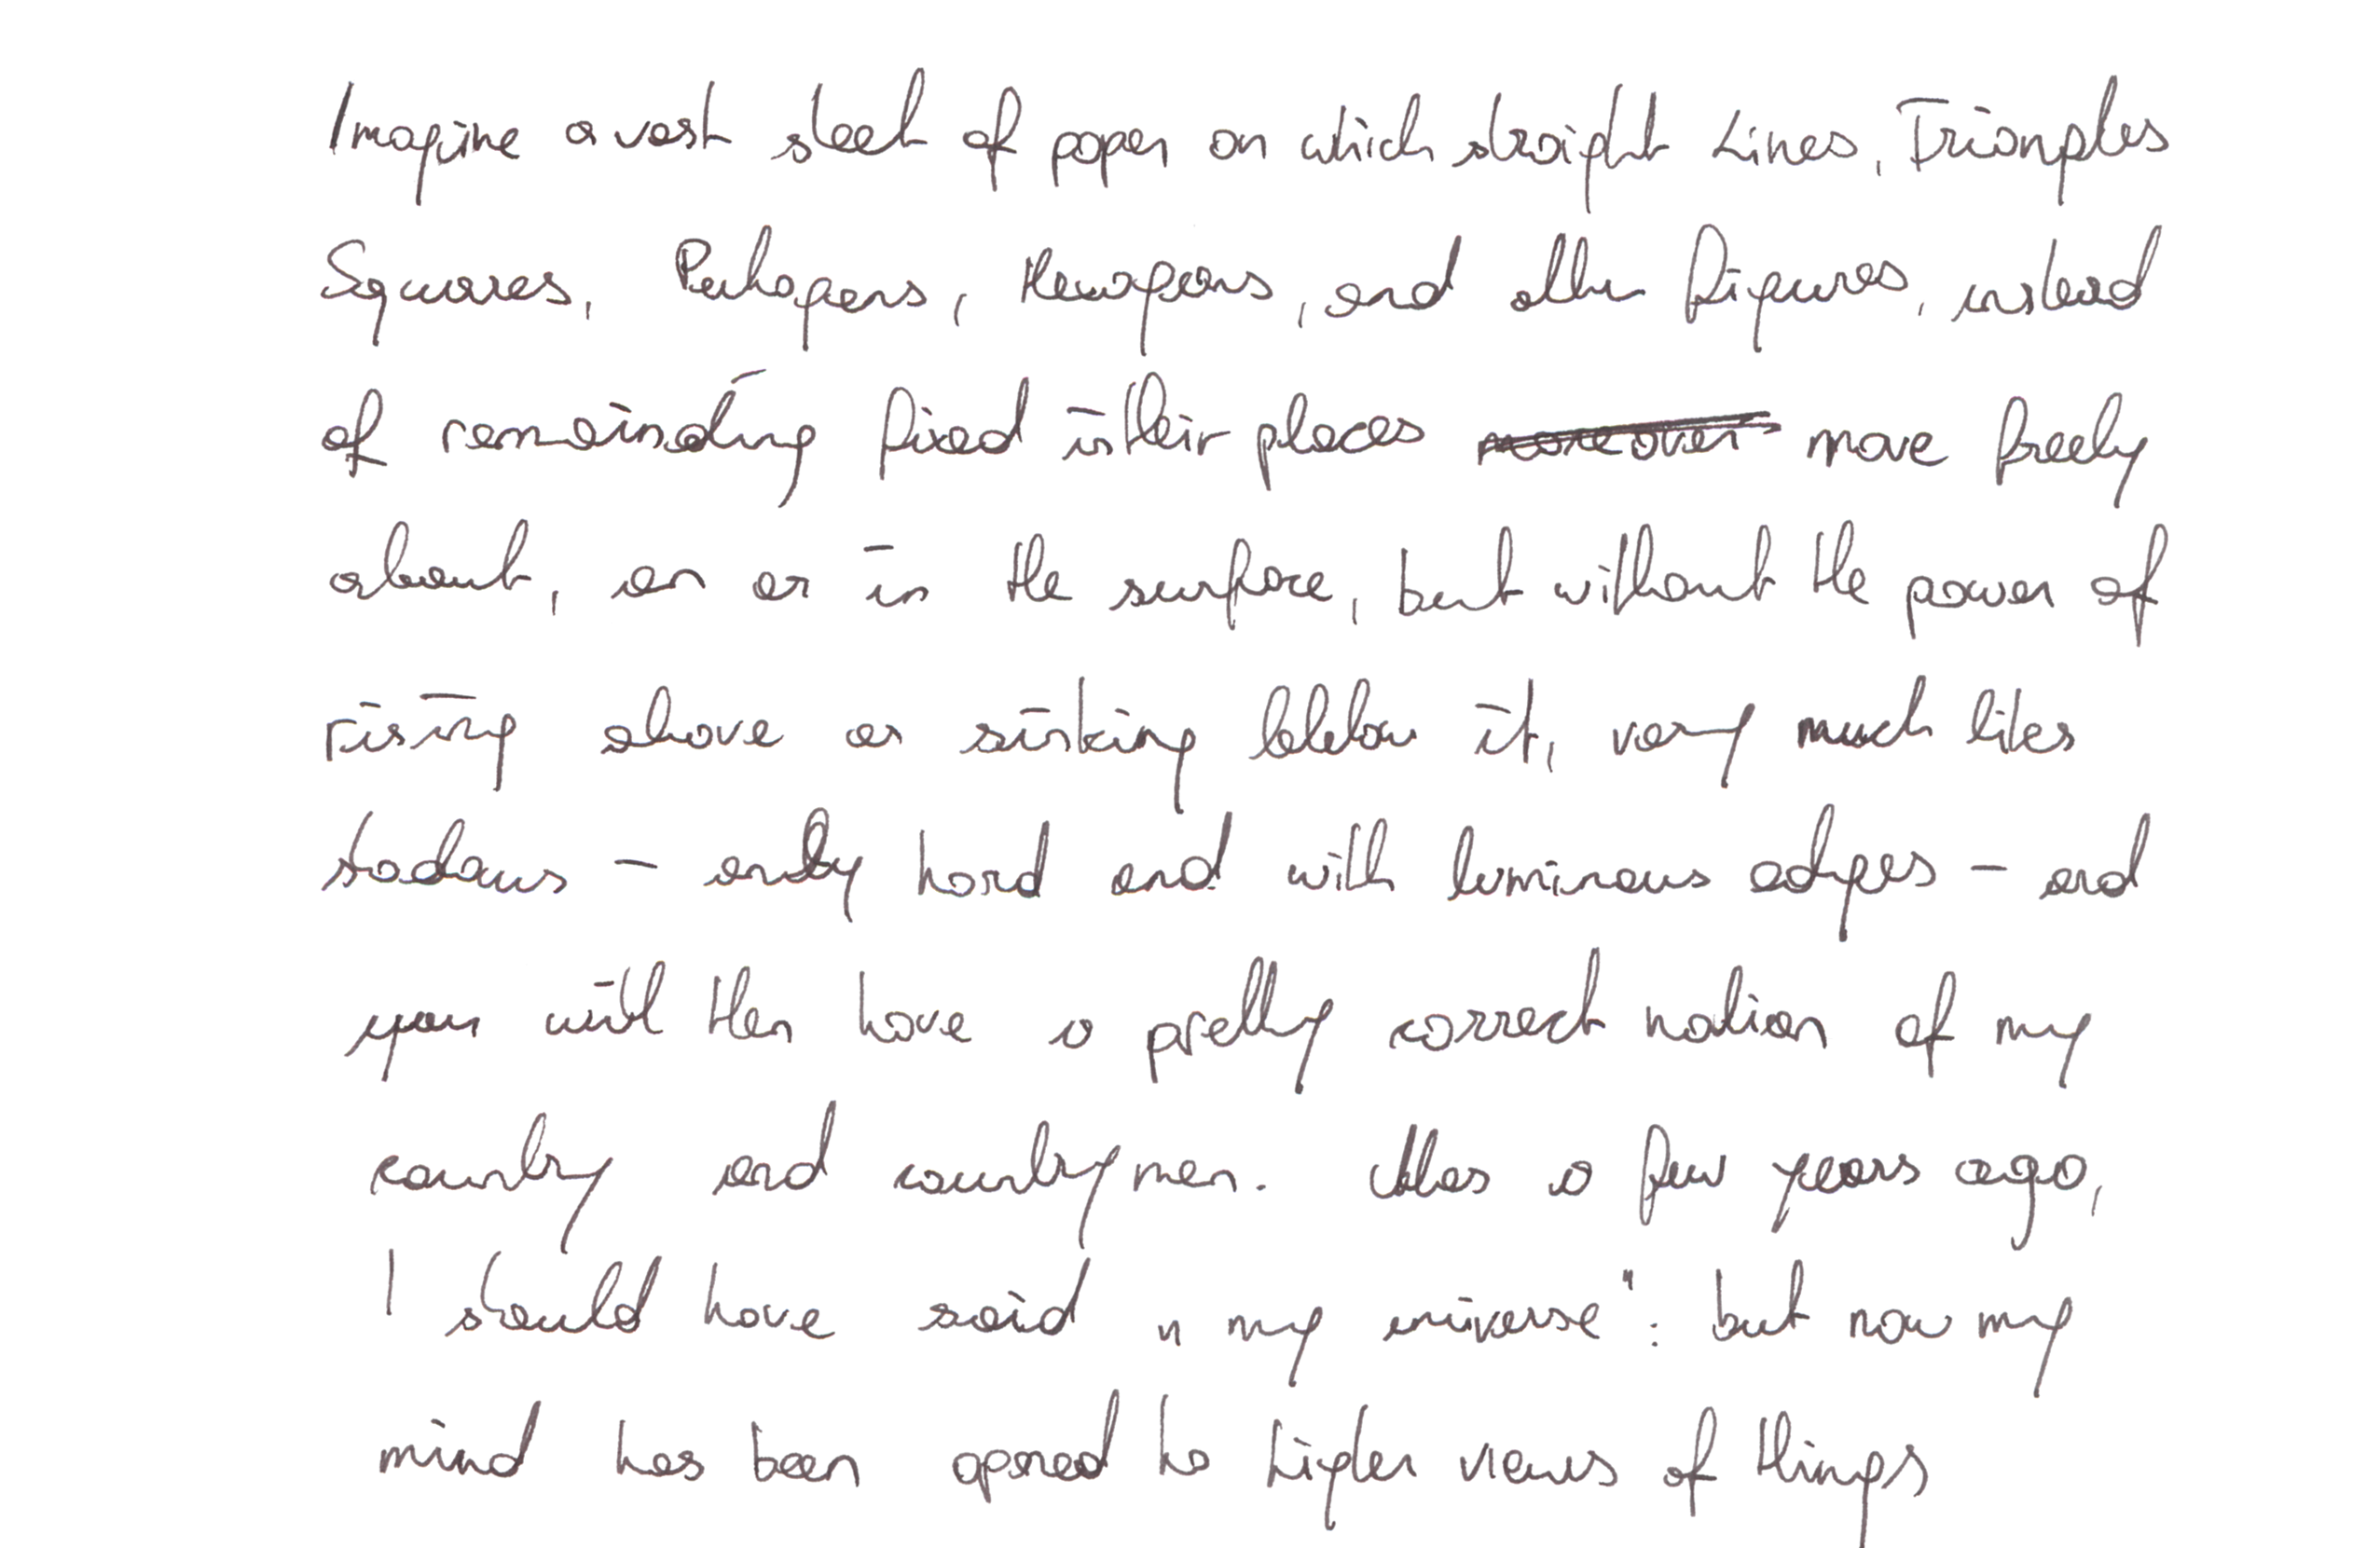 Imagine a vast sheet of paper on which straight Lines, Triangles
Squares, Pentagons, Hexagons, and other figures, instead
of remainding fixed in their places moreover move freely
about, on or in the surface, but without the power of
rising above or sinking below it, very much likes
shadows - only hard and with luminous edges - and
you will then have a pretty correct notion of my
country and countrymen. Alas a few years ago,
I should have said " my universe": but now my
mind has been opened to higher views of things